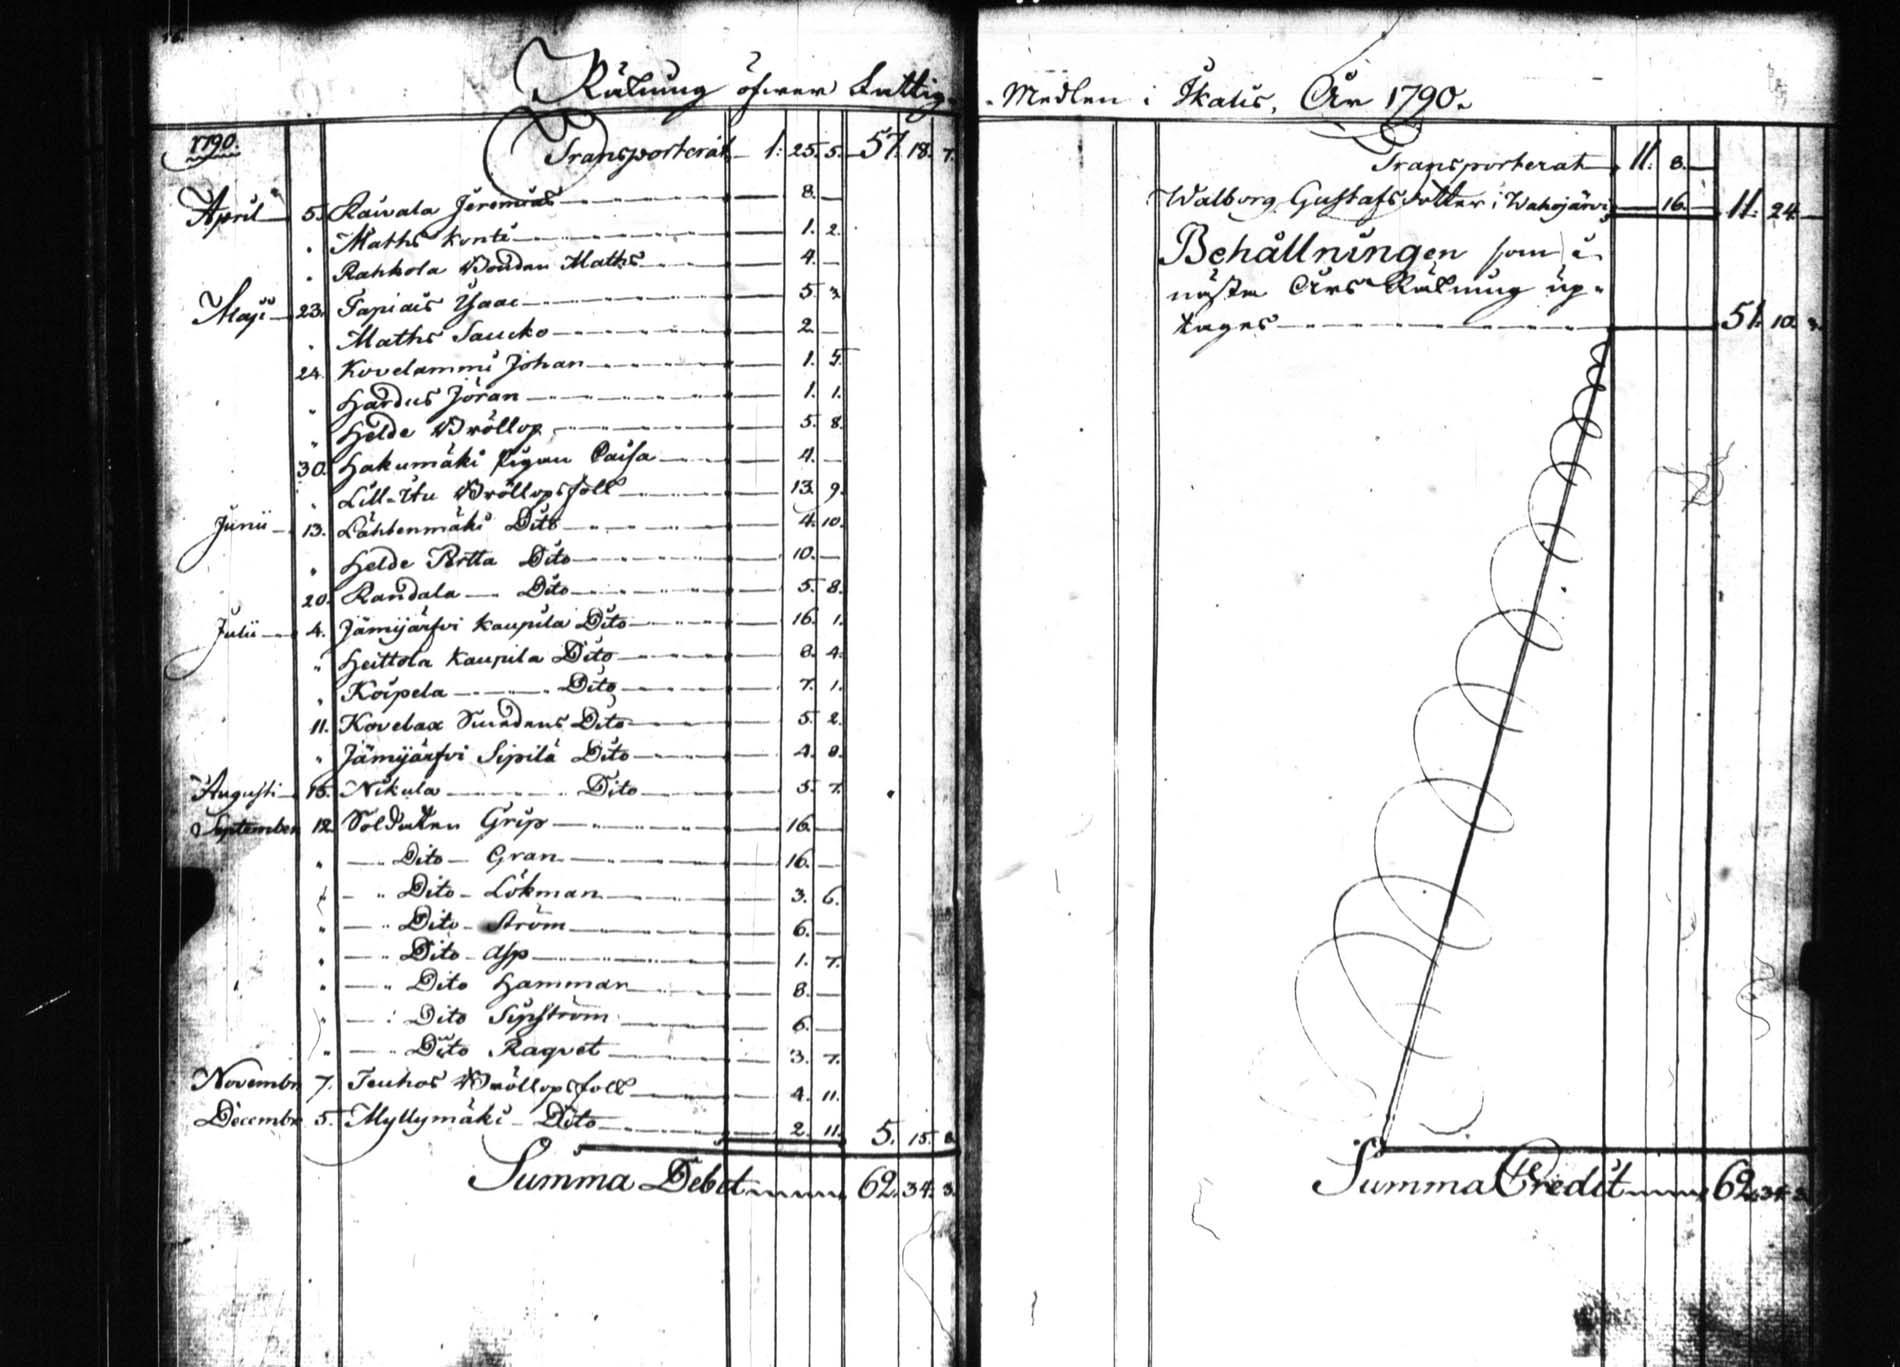 Räkning öfwer Fattig-
1790. Transporterat 1. 25. 5. 57. 18. 7.
April 5. Raivala Jeremias 8.
" Maths Konti 1. 2.
" Rahkola Bonden Maths 4.
Maji 23. Tapiais Ysaac 5. 3.
" Maths Saucko 2.
24. Kovelammi Johan 1. 5.
" Hardus Jöran 1. 1.
" Helde Bröllop 5. 8.
30. Hakumäki Pigan Caisa 4.
" Lill-Itu Bröllopsfolk 13. 9.
Junii 13. Lähtenmäki Dito 4. 10.
" Helde Pertta Dito 10.
20. Randala Dito 5. 8.
Julii 4. Jämijärfvi Kaupila Dito 16. 1.
" Heittola Kaupila Dito 8. 4.
" Koipela Dito 7. 1.
11. Kovelax Smedens Dito 5. 2.
" Jämijärfvi Sipilä Dito 4. 8.
Augusti 15. Nikula Dito 5. 7.
September 12. Soldaten Grip 16.
" Dito Gran 16.
" Dito Lökman 3. 6.
" Dito Ström 6.
" Dito Asp 1. 7.
" Dito Hamman 8.
" Dito Sipström 6.
" Dito Raquet 3. 7.
Novembr. 7. Teuhos Bröllopsfolk 4. 11.
Decembr. 5. Myllymäki Dito 2. 11. 5. 15. 8.
Summa Debet 62. 34. 3.
-Medlen i Ikalis, År 1790.
Transporterat 11. 8.
Walborg Gustafsdotter i Wahojärvi 16. 11. 24.
Behållningen som i
nästa Års Räkning up-
tages 51. 10. 3.
Summa Credit 62. 34. 3.